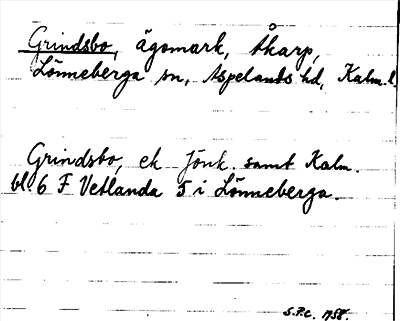 Grindsbo, ägomark, Åkarp,
Lönneberga sn, Aspelands hd, Kalm. l.
Grindsbo, ek Jönk. samt Kalm.
bl. 6 F Vetlanda 5 i Lönneberga.
S.P.C. 1958.